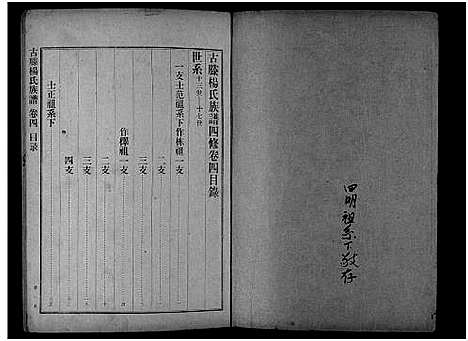 田明祖系下敬存
古滕楊氏族譜四修卷四目錄
世系十三世—十七世
一支士范祖系下作栋祖一支
二支
三支
作檡祖一支
二支
三支
四支
士正祖系下
古滕楊氏族譜 卷四 目录